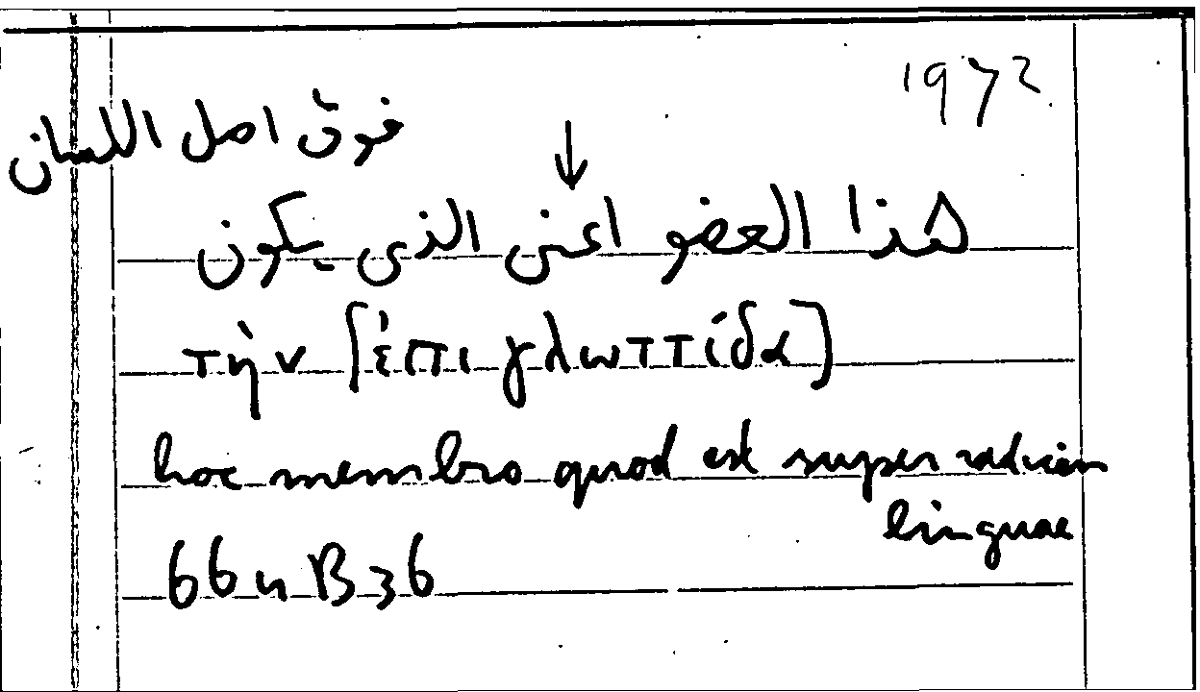 1972
فوق اصل اللسان
هذا العضو اعنى الذى يكون
τὴν [ἐπιγλωττίδα]
hoc membro quod est super radicem
linguae
664 B36